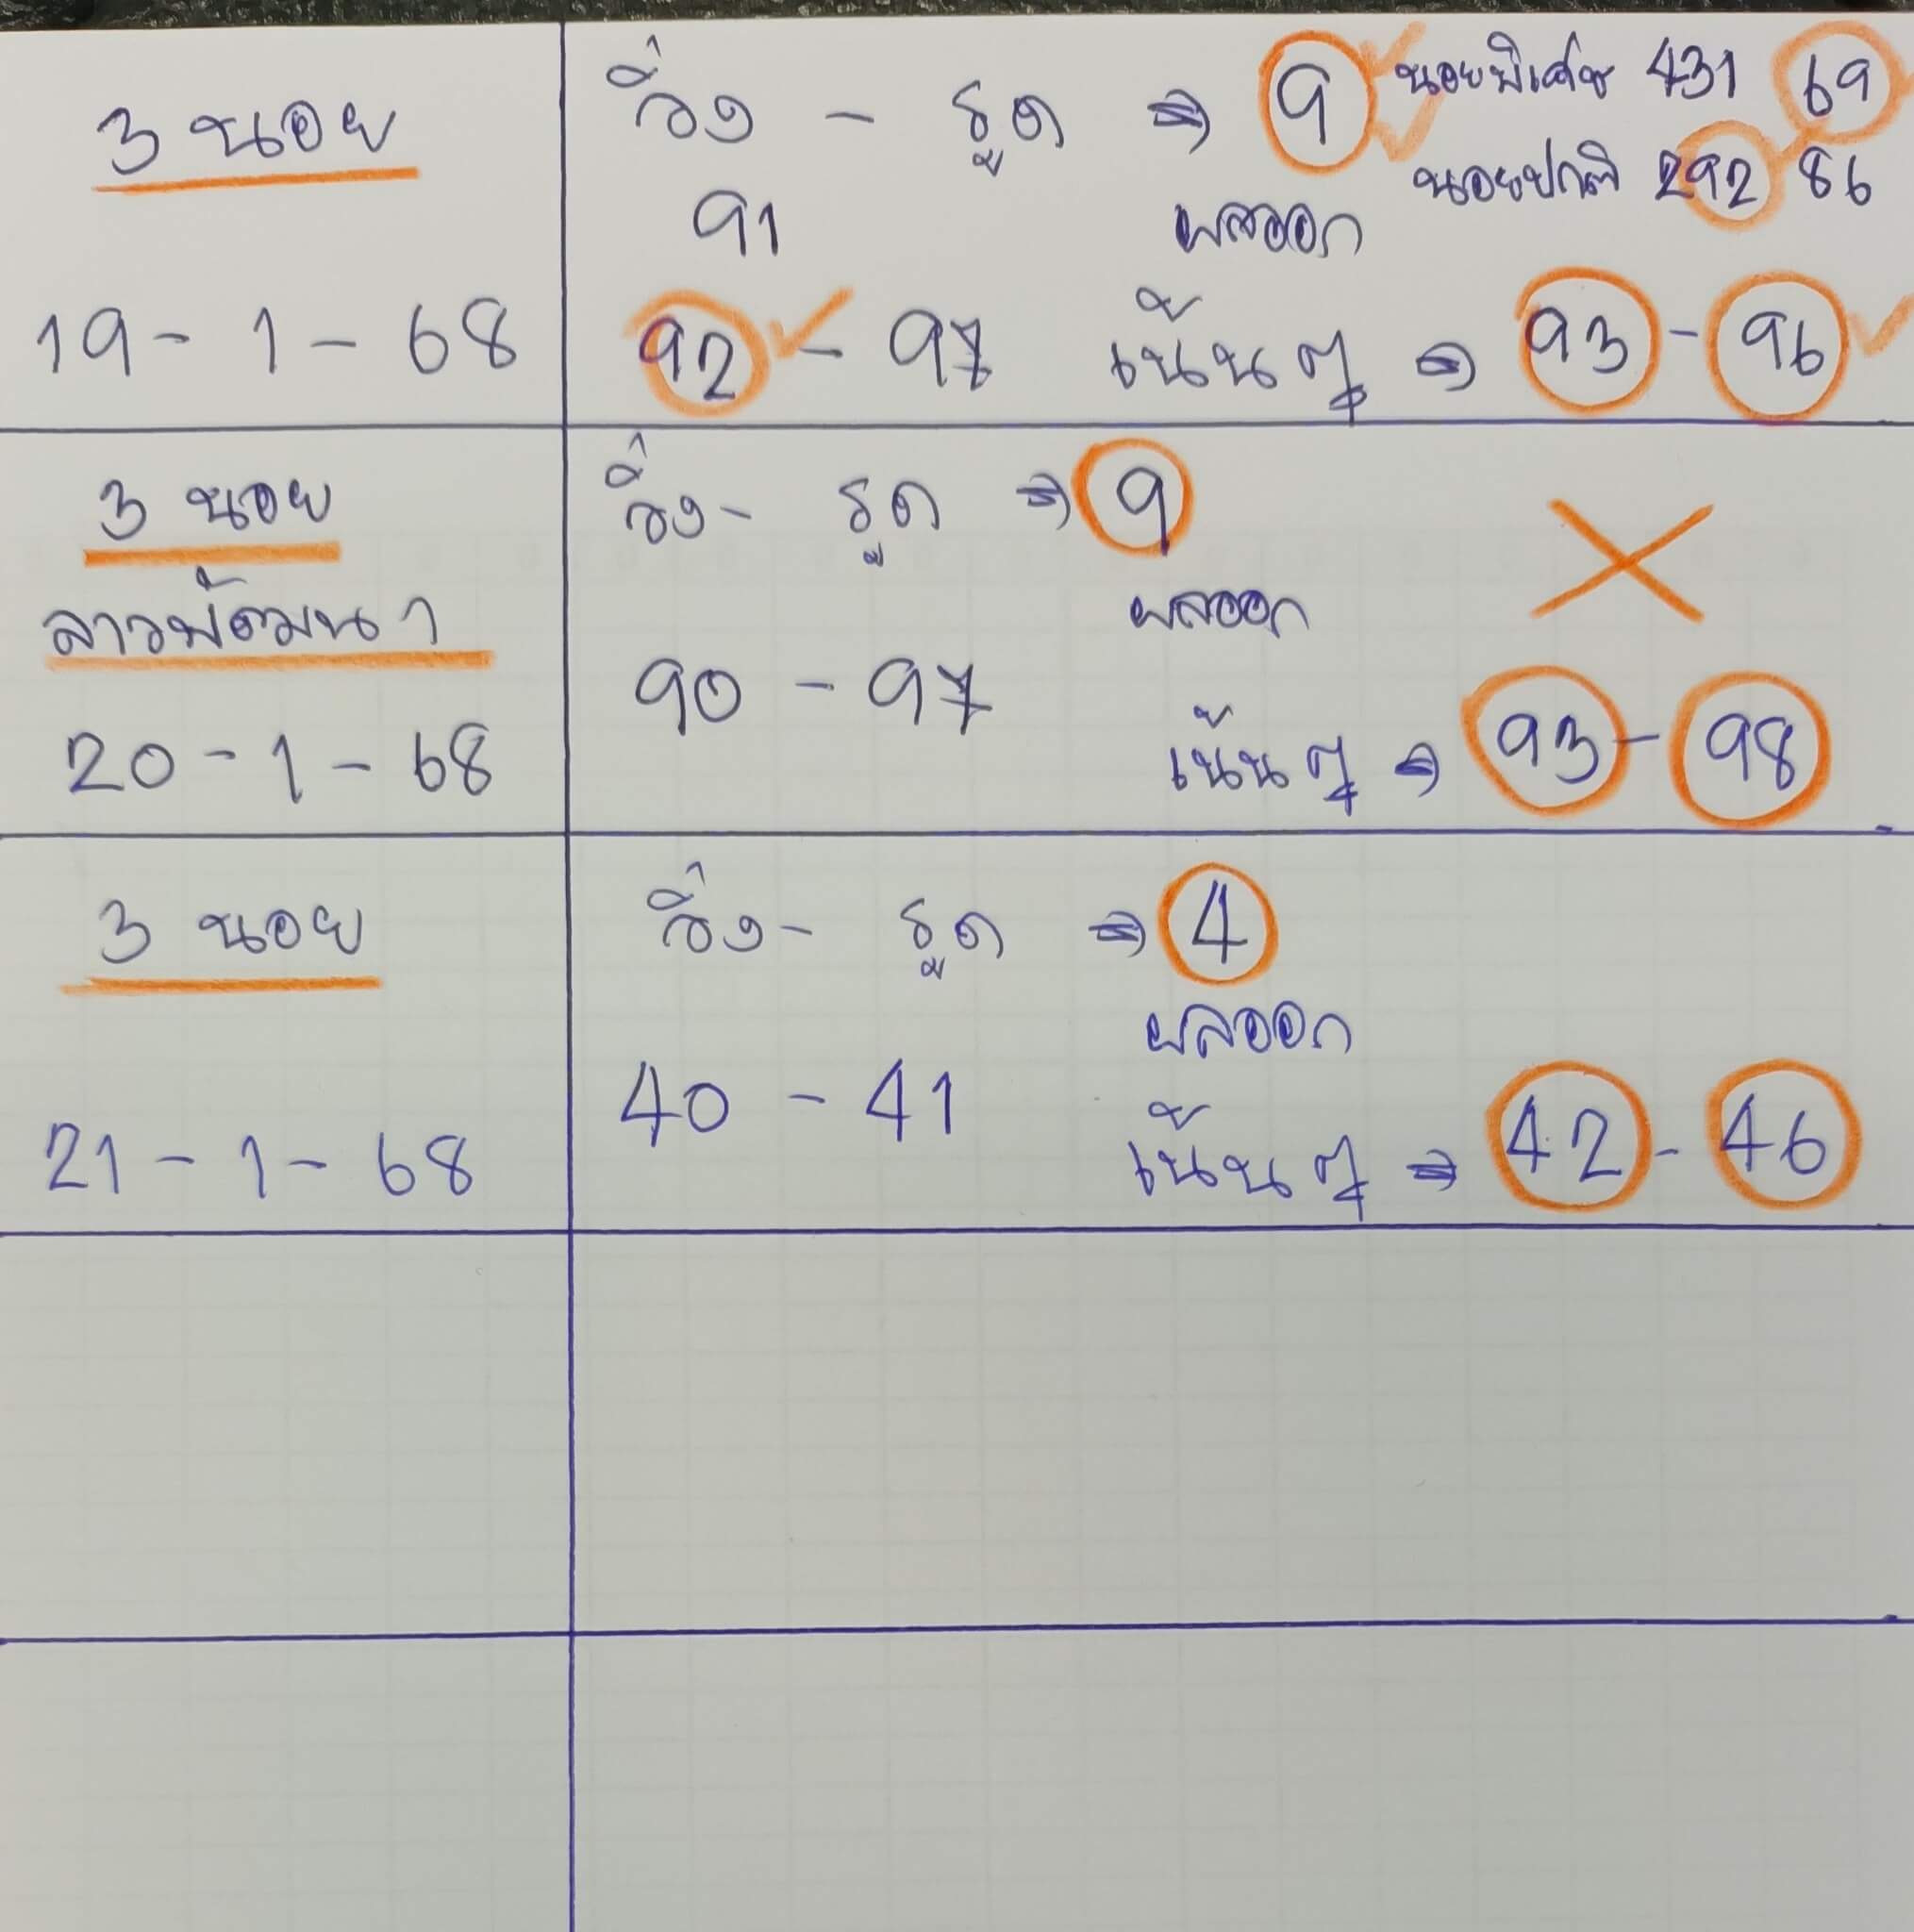 3 นอย
19 - 1 - 68
วิ่ง - รูด ⇒ 9
นอยพิเศษ 431 69
นอยปกติ 292 86
91
ผลออก
92 - 97
เน้นๆ ⇒ 93 - 96
3 นอย
ลาวพัฒนา
20 - 1 - 68
วิ่ง - รูด ⇒ 9
ผลออก
90 - 97
เน้นๆ ⇒ 93 - 98
3 นอย
21 - 1 - 68
วิ่ง - รูด ⇒ 4
ผลออก
40 - 41
เน้นๆ ⇒ 42 - 46